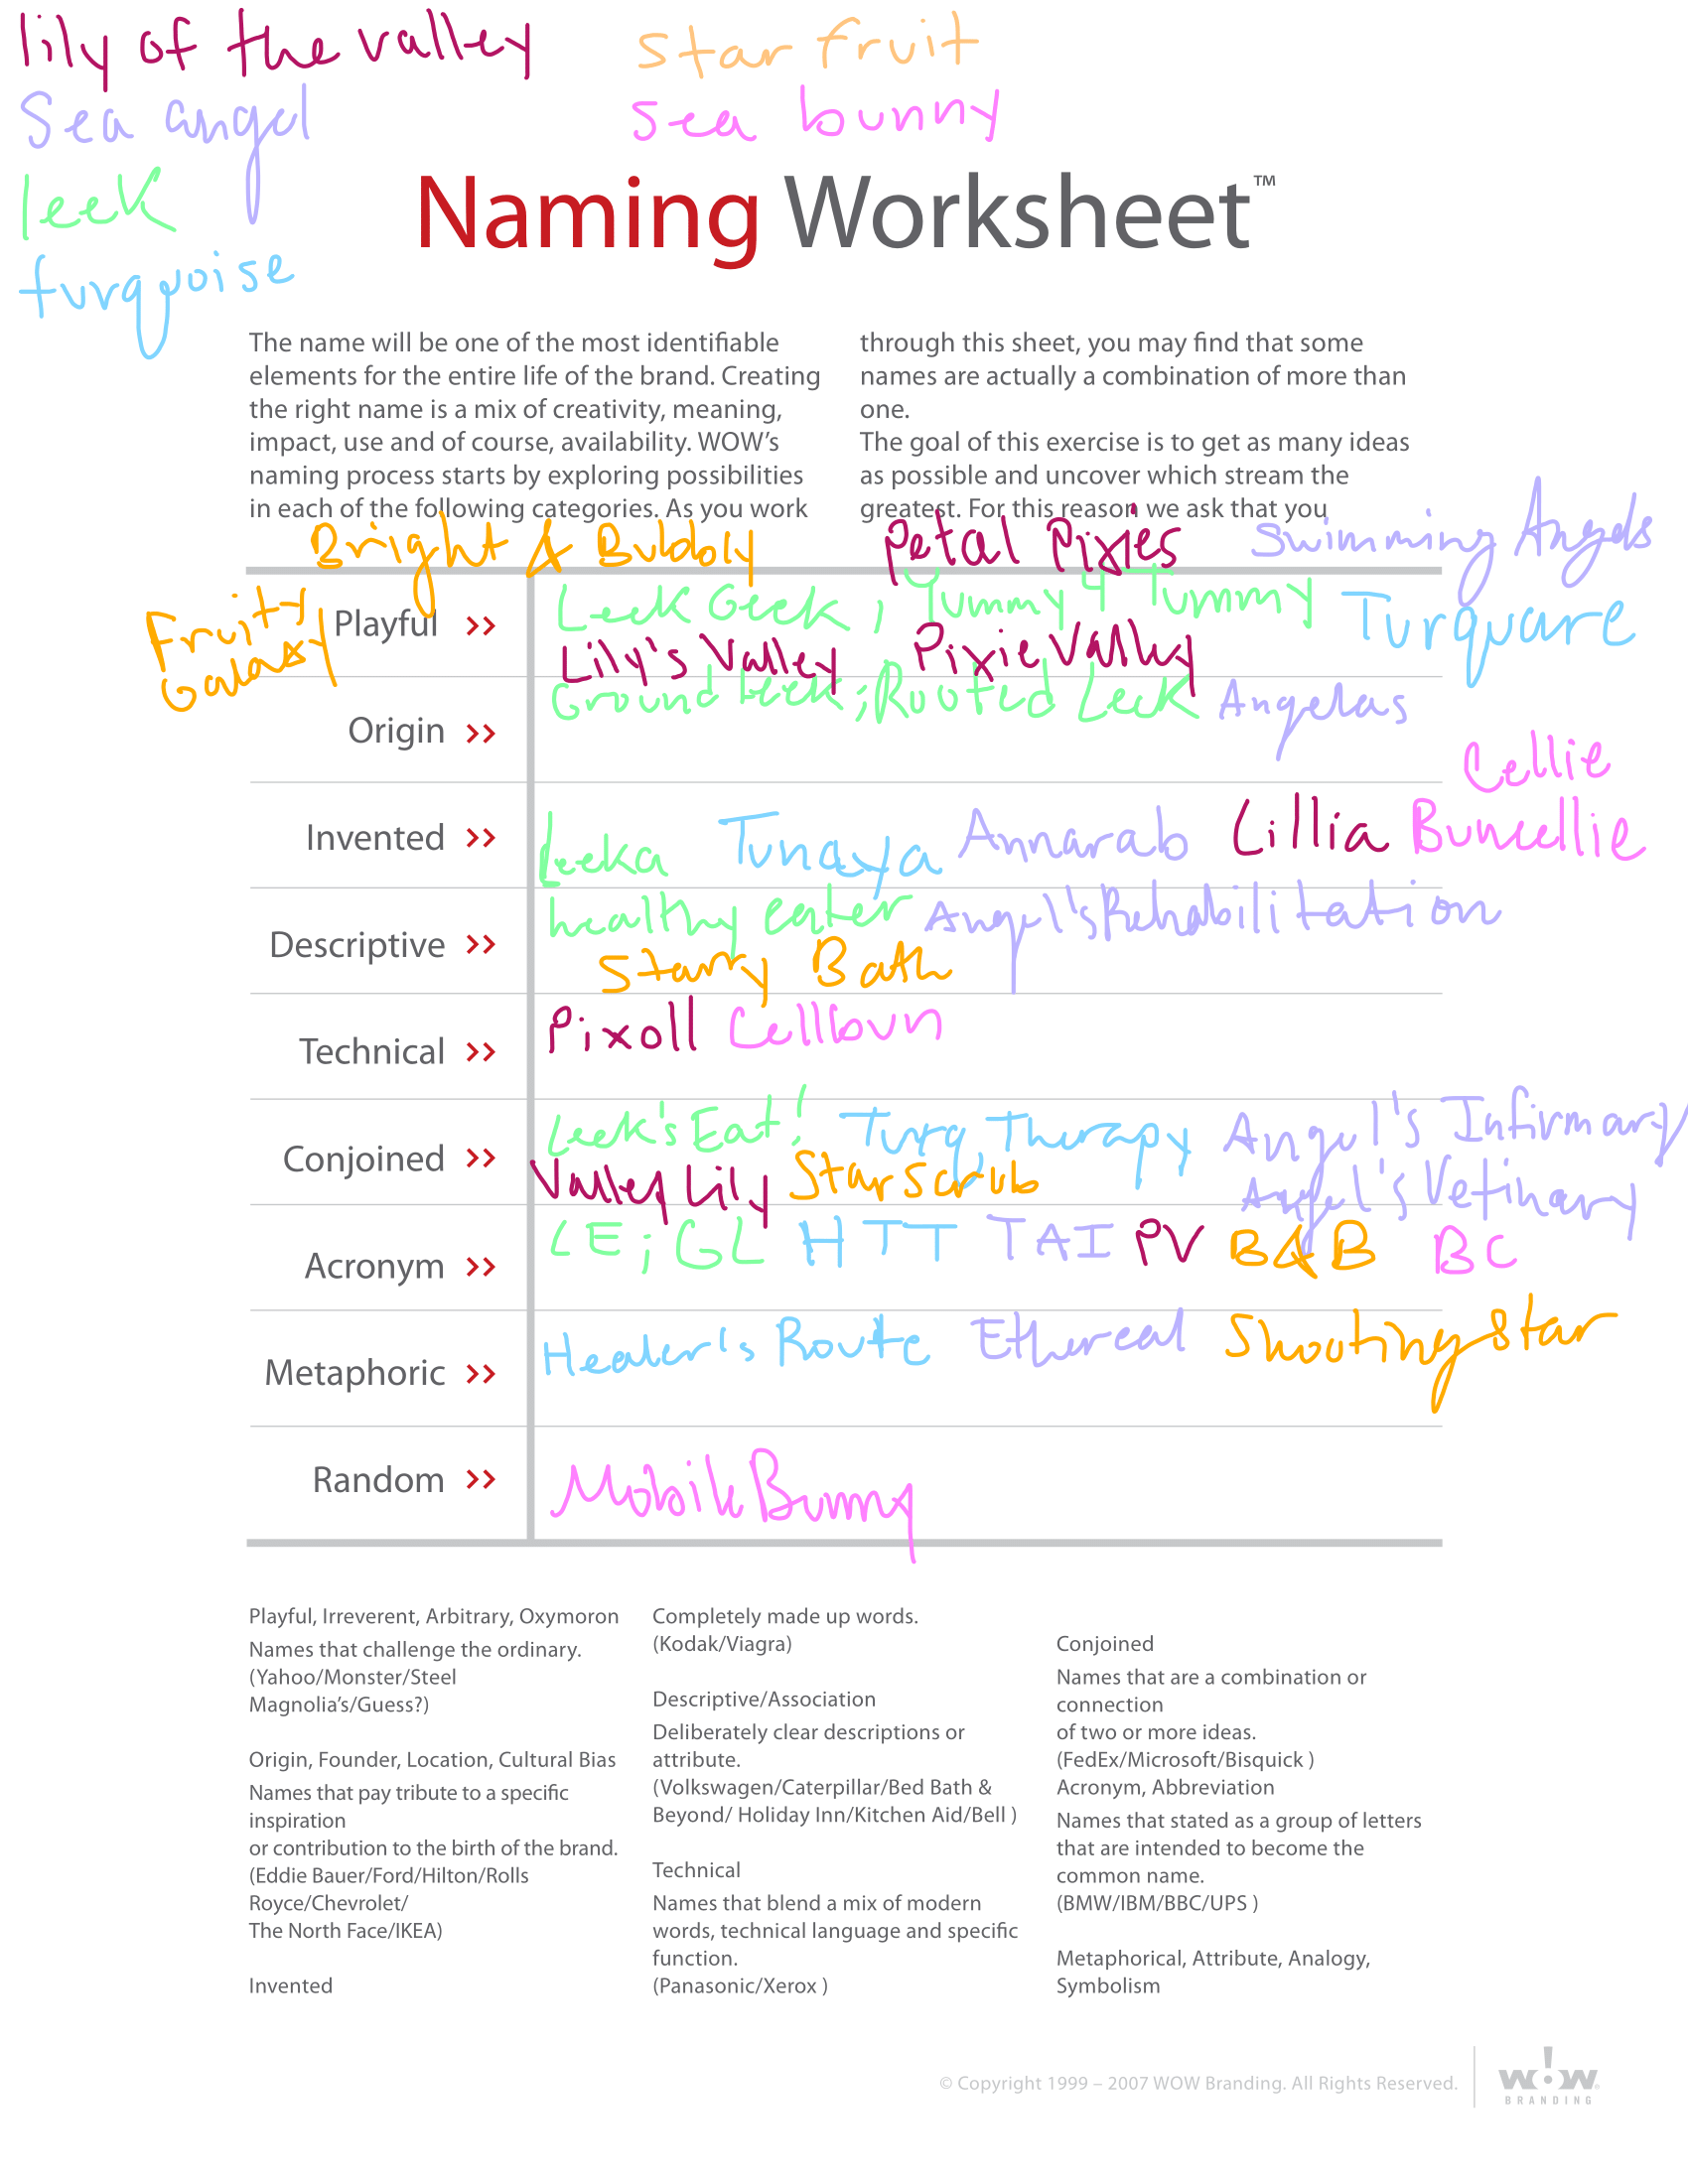 lily of the valley
star fruit
Sea angel
sea bunny
leek
turquoise
Naming Worksheet™
The name will be one of the most identifiable
elements for the entire life of the brand. Creating
the right name is a mix of creativity, meaning,
impact, use and of course, availability. WOW's
naming process starts by exploring possibilities
in each of the following categories. As you work
through this sheet, you may find that some
names are actually a combination of more than
one.
The goal of this exercise is to get as many ideas
as possible and uncover which stream the
greatest. For this reason we ask that you
Bright & Bubbly
Petal Pixies
Swimming Angels
Fruity
Galaxy
Playful >>
Leek Geek; Yummy 4 Tummy
Turquare
Lily's Valley PixieValley
Origin >>
Ground Leek; Rooted Leek Angelas
Cellie
Invented >>
Leeka Tunaya Annarab Lillia Buncellie
Descriptive >>
healthy eater Angel's Rehabilitation
Starry Bath
Technical >>
Pixoll Cellbun
Conjoined >>
Leek's Eat! Turq Therapy Angel's Infirmary
Valley Lily Star scrub Angel's Vetinary
Acronym >>
LE; GL HTT TAI PV B&B BC
Metaphoric >>
Healer's Route Ethereal Shooting Star
Random >>
Mobile Bunny
Playful, Irreverent, Arbitrary, Oxymoron
Names that challenge the ordinary.
(Yahoo/Monster/Steel
Magnolia's/Guess?)
Origin, Founder, Location, Cultural Bias
Names that pay tribute to a specific
inspiration
or contribution to the birth of the brand.
(Eddie Bauer/Ford/Hilton/Rolls
Royce/Chevrolet/
The North Face/IKEA)
Invented
Completely made up words.
(Kodak/Viagra)
Descriptive/Association
Deliberately clear descriptions or
attribute.
(Volkswagen/Caterpillar/Bed Bath &
Beyond/ Holiday Inn/Kitchen Aid/Bell )
Technical
Names that blend a mix of modern
words, technical language and specific
function.
(Panasonic/Xerox )
Conjoined
Names that are a combination or
connection
of two or more ideas.
(FedEx/Microsoft/Bisquick )
Acronym, Abbreviation
Names that stated as a group of letters
that are intended to become the
common name.
(BMW/IBM/BBC/UPS )
Metaphorical, Attribute, Analogy,
Symbolism
© Copyright 1999 – 2007 WOW Branding. All Rights Reserved.
w!w
BRANDING